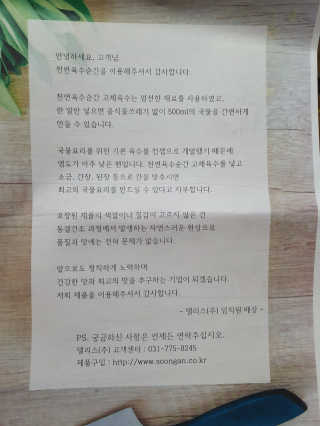 안녕하세요, 고객님.
천연육수순간을 이용해주셔서 감사합니다.
천연육수순간 고체육수는 엄선한 재료를 사용하였고,
한 알만 넣으면 음식물쓰레기 없이 500ml의 국물을 간편하게
만들 수 있습니다.
국물요리를 위한 기본 육수를 컨셉으로 개발했기 때문에
염도가 아주 낮은 편입니다. 천연육수순간 고체육수를 넣고
소금, 간장, 된장 등으로 간을 맞추시면
최고의 국물요리를 만드실 수 있다고 자부합니다.
포장된 제품의 색깔이나 질감이 고르지 않은 건
동결건조 과정에서 발생하는 자연스러운 현상으로
품질과 맛에는 전혀 문제가 없습니다.
앞으로도 정직하게 노력하며
건강한 맛과 최고의 맛을 추구하는 기업이 되겠습니다.
저희 제품을 이용해주셔서 감사합니다.
- 델리스(주) 임직원 배상 -
PS. 궁금하신 사항은 언제든 연락주십시오.
델리스(주) 고객센터 : 031-775-8245
제품구입 : http://www.soongan.co.kr